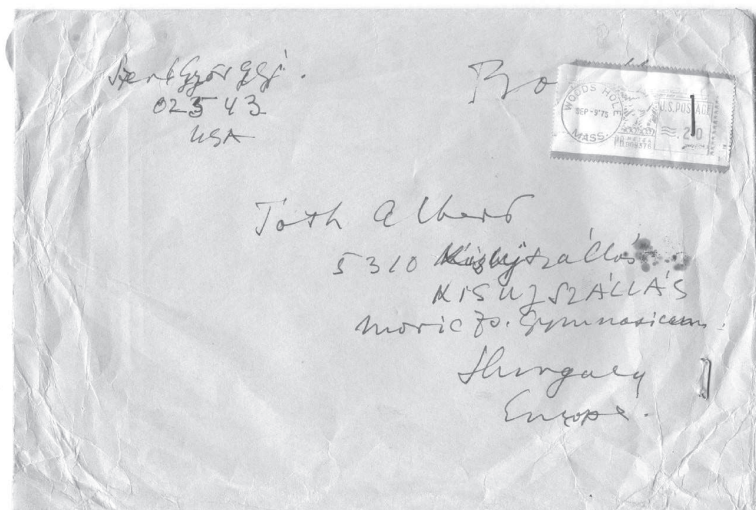 Szent Györgyi.
02543
USA
WOODS HOLE
SEP
MASS.
U.S. POSTAGE
Tóth Albert
5310 Kisújszállás
KISUJSZÁLLÁS
Moricz Zs. Gymnasium.
Hungary
Europe.